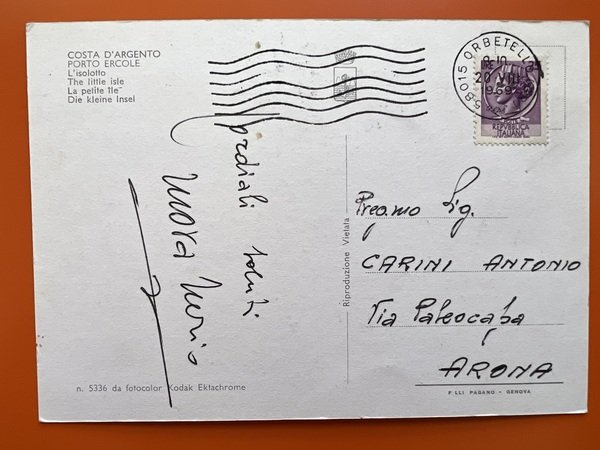 COSTA D'ARGENTO
PORTO ERCOLE
L'isolotto
The little isle
La petite île
Die kleine Insel
Cordiali saluti
n. 5336 da fotocolor Kodak Ektachrome
Riproduzione Vietata
58015 ORBETELLO
20 VIII
1969
REPVBBLICA
ITALIANA
Preg.mo Sig.
CARINI ANTONIO
Via Paleocapa
ARONA
F.LLI PAGANO - GENOVA